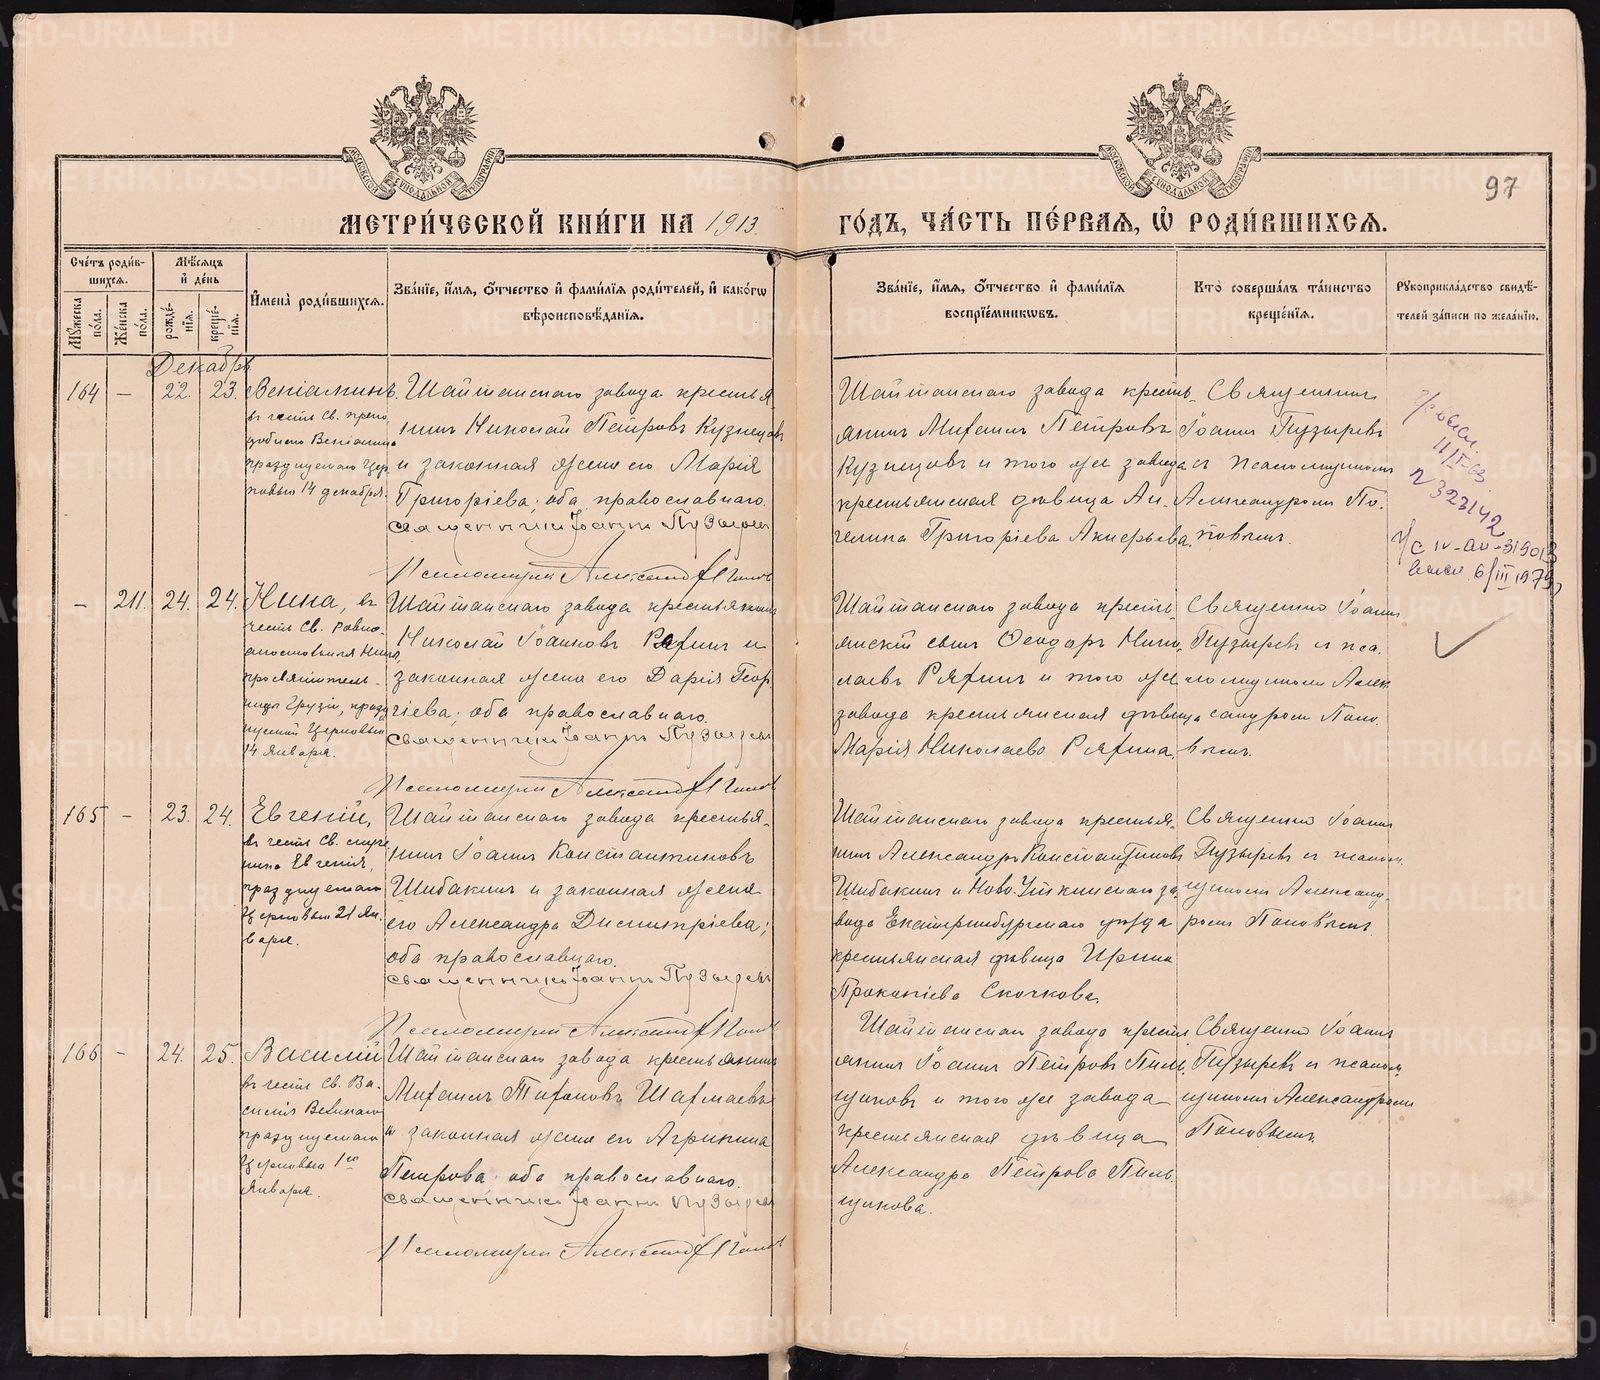 97
МЕТРИ́ЧЕСКОЙ КНИ́ГИ НА 1913. ГО́ДЪ, ЧА́СТЬ ПЕ́РВАЯ, Ѽ РОДИ́ВШИХСЯ.
Сче́тъ роди́в-
шихся.
Мѣ́сяцъ
и҆ де́нь
Мꙋ́жеска
по́ла.
Же́нска
по́ла.
рожде́-
нїя.
креще́-
нїя.
И҆мена̀ роди́вшихся.
Зва́нїе, и҆́мя, ѻ҆́тчество и҆ фами́лїя роди́телей, и҆ како́гѡ
вѣроисповѣ́данїя.
Зва́нїе, и҆́мя, ѻ҆́тчество и҆ фами́лїя
воспрїе́мникѡвъ.
Кто̀ соверша́лъ та́инство
креще́нїя.
Рꙋкоприкла́дство свидѣ́-
телей за́писи по жела́нїю.
Декабрь
164 — 22. 23.
Веніаминъ.
въ честь Св. препо
добнаго Веніамина
празднуемаго Цер
ковью 14 декабря.
Шайтанскаго завода крестья
нинъ Николай Петровъ Кузнецовъ
и законная жена его Марія
Григоріева; оба православнаго.
священникъ Іоаннъ Пузыревъ
Псаломщикъ Александръ Поповъ
Шайтанскаго завода кресть
янинъ Михаилъ Петровъ
Кузнецовъ и того же завода
крестьянская дѣвица Ан
гелина Григоріева
Священникъ
Іоаннъ Пузыревъ
съ псаломщикомъ
Александромъ По-
повымъ.
11/IV-63
n 323142
IV-АИ-315013
6/III 1979
— 211. 24. 24.
Нина, въ
честь Св. Равно-
апостольныя Нины,
просвѣтитель-
ницы Грузіи, праздн
уемой Церковью
14 Января.
Шайтанскаго завода крестьянинъ
Николай Іоанновъ Ряхинъ и
законная жена его Дарія Геор
гіева; оба православнаго.
священникъ Іоаннъ Пузыревъ
Псаломщикъ Александръ Поповъ
Шайтанскаго завода кресть
янскій сынъ Ѳеодоръ Нико
лаевъ Ряхинъ и того же
завода крестьянская дѣвица
Марія Николаева Ряхина.
Священникъ Іоаннъ
Пузыревъ съ пса-
ломщикомъ Алек
сандромъ Попо-
вымъ.
165 — 23. 24.
Евгеній,
въ честь Св. муче
ника Евгенія,
празднуемаго
Церковью 21 Ян
варя.
Шайтанскаго завода крестья-
нинъ Іоаннъ Константиновъ
Шибакинъ и законная жена
его Александра Димитріева;
оба православнаго.
священникъ Іоаннъ Пузыревъ
Псаломщикъ Александръ Поповъ
Шайтанскаго завода крестья-
нинъ Александръ Константиновъ
Шибакинъ и Ново-Уткинскаго за-
вода Екатеринбургскаго уѣзда
крестьянская дѣвица Ирина
Прокопіева Скочкова.
Священникъ Іоаннъ
Пузыревъ съ псалом
щикомъ Александ-
ромъ Поповымъ
166 — 24. 25.
Василій
въ честь Св. Ва-
силія Великаго
празднуемаго
Церковью 1го
Января.
Шайтанскаго завода крестьянинъ
Михаилъ Тихоновъ Шахмаевъ
и законная жена его Агрипина
Петрова; оба православнаго.
священникъ Іоаннъ Пузыревъ
Псаломщикъ Александръ Поповъ
Шайтанскаго завода кресть
янинъ Іоаннъ Петровъ Пиль
щиковъ и того же завода
крестьянская дѣвица
Александра Петрова Пиль
щикова.
Священникъ Іоаннъ
Пузыревъ съ псалом
щикомъ Александромъ
Поповымъ.
METRIKI.GASO-URAL.RU